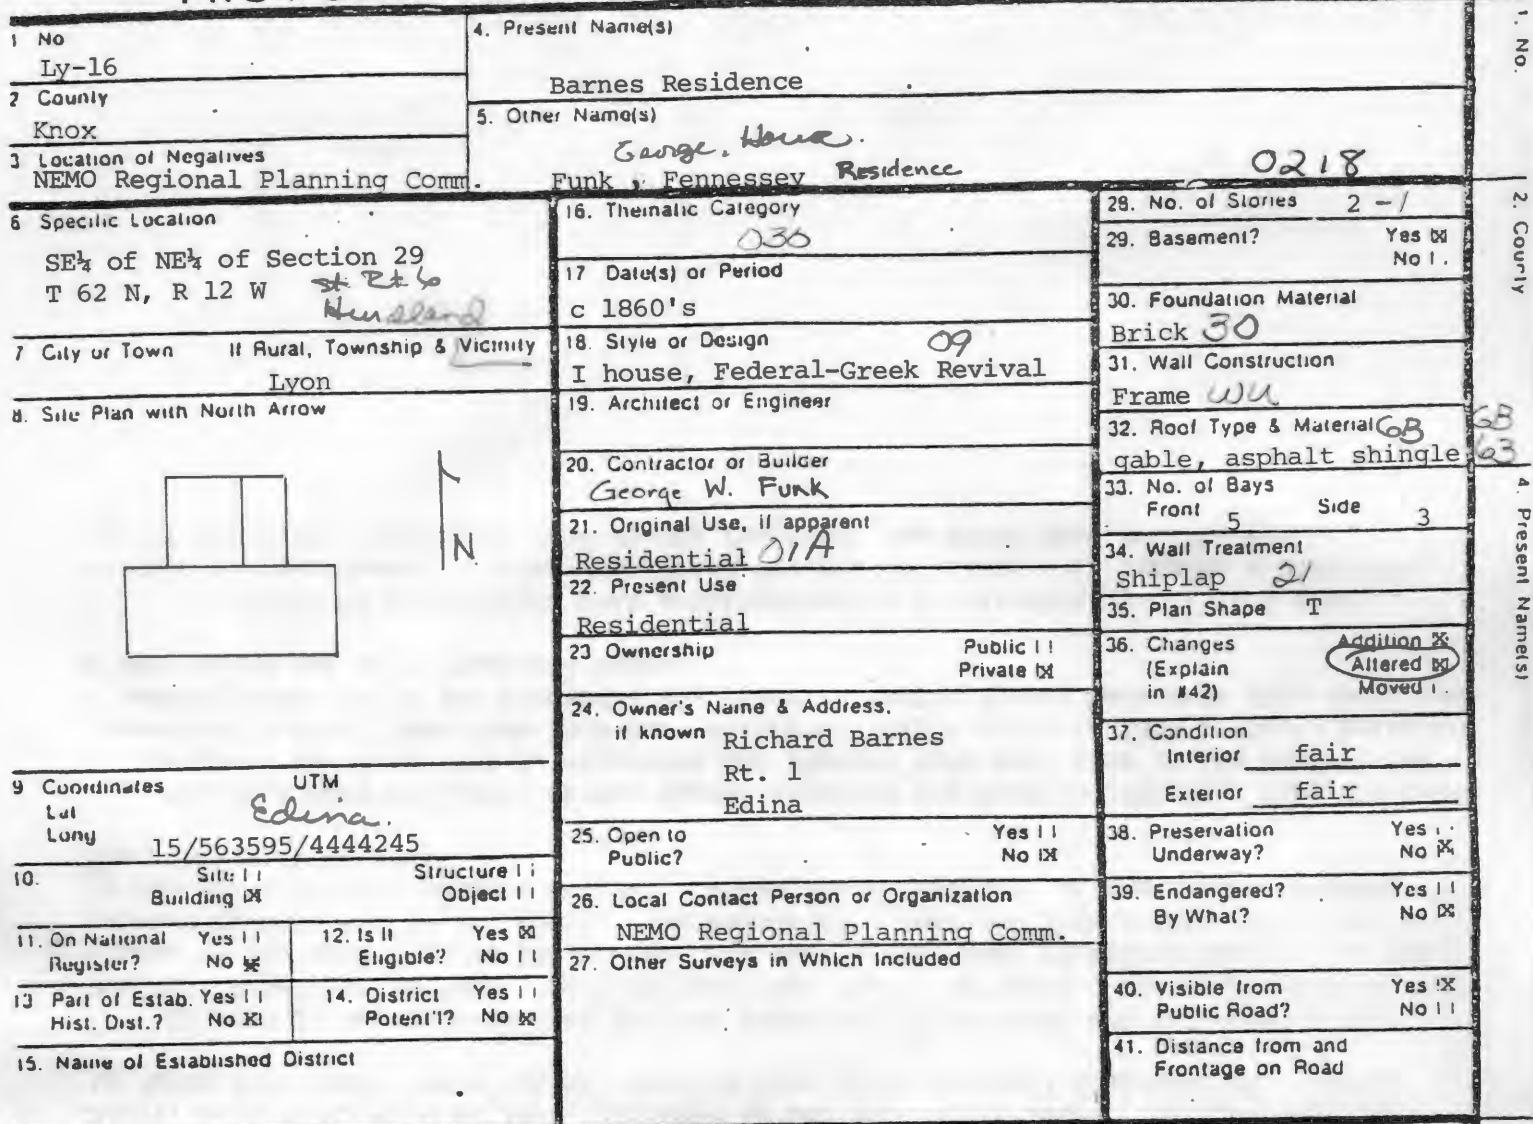 1 No
Ly-16
2 County
Knox
3 Location of Negatives
NEMO Regional Planning Comm.
4. Present Name(s)
Barnes Residence
5. Other Name(s)
George, House.
Funk, Fennessey Residence
0218
6 Specific Location
SE¼ of NE¼ of Section 29
T 62 N, R 12 W St Rt 6
7 City or Town If Rural, Township & Vicinity
Lyon
8. Site Plan with North Arrow
N
9 Coordinates UTM
Lat
Long
Edina.
15/563595/4444245
10. Site [ ] Structure [ ]
Building [X] Object [ ]
11. On National Register? Yes [ ] No [X]
12. Is It Eligible? Yes [X] No [ ]
13 Part of Estab. Hist. Dist.? Yes [ ] No [X]
14. District Potent'l? Yes [ ] No [X]
15. Name of Established District
16. Thematic Category
030
17 Date(s) or Period
c 1860's
18. Style or Design 09
I house, Federal-Greek Revival
19. Architect or Engineer
20. Contractor or Builder
George W. Funk
21. Original Use, if apparent
Residential 01A
22. Present Use
Residential
23 Ownership Public [ ]
Private [X]
24. Owner's Name & Address,
if known Richard Barnes
Rt. 1
Edina
25. Open to Yes [ ]
Public? No [X]
26. Local Contact Person or Organization
NEMO Regional Planning Comm.
27. Other Surveys in Which Included
28. No. of Stories 2-1
29. Basement? Yes [X]
No [ ]
30. Foundation Material
Brick 30
31. Wall Construction
Frame WU
32. Roof Type & Material GB
gable, asphalt shingle
GB
63
33. No. of Bays
Front 5 Side 3
34. Wall Treatment
Shiplap 21
35. Plan Shape T
36. Changes Addition [X]
(Explain Altered [X]
in #42) Moved [ ]
37. Condition
Interior fair
Exterior fair
38. Preservation Yes [ ]
Underway? No [X]
39. Endangered? Yes [ ]
By What? No [X]
40. Visible from Yes [X]
Public Road? No [ ]
41. Distance from and
Frontage on Road
1. No.
2. County
4. Present Name(s)